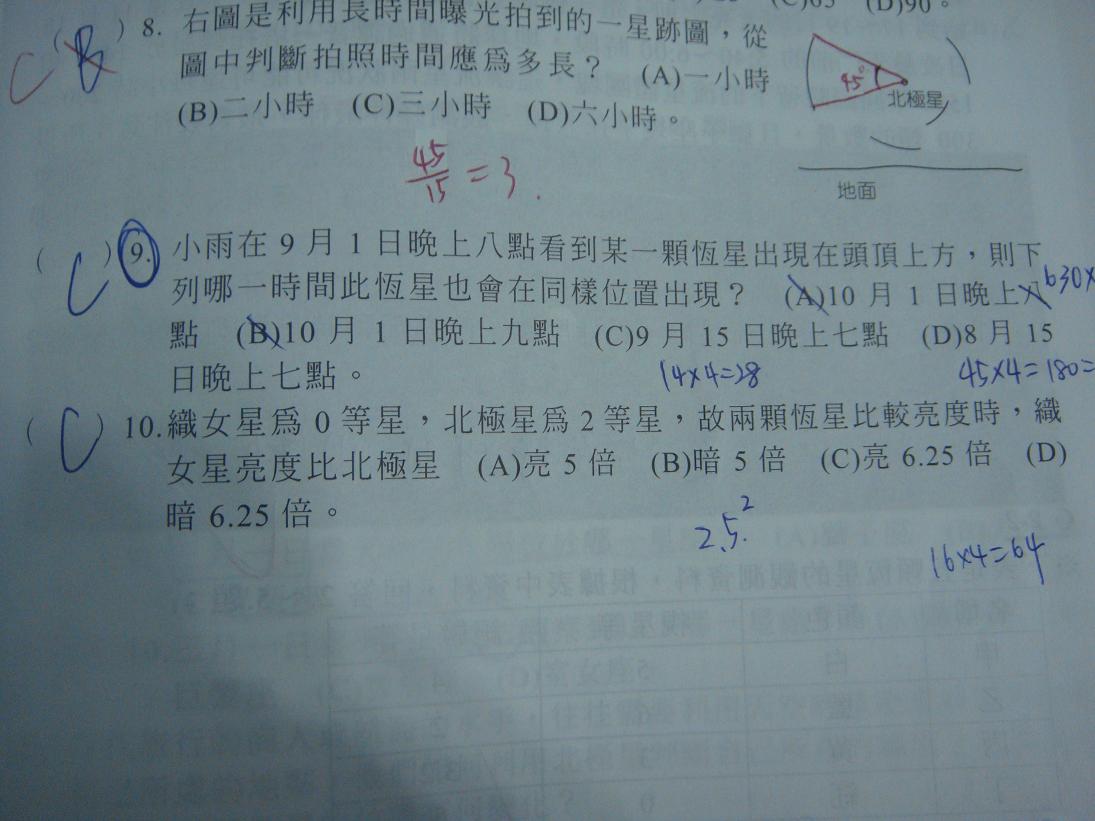 (C)65 (D)90。
C ( B ) 8. 右圖是利用長時間曝光拍到的一星跡圖，從
圖中判斷拍照時間應為多長？ (A)一小時
(B)二小時 (C)三小時 (D)六小時。
45°
北極星
地面
45/15 = 3.
( C ) 9. 小雨在 9 月 1 日晚上八點看到某一顆恆星出現在頭頂上方，則下
列哪一時間此恆星也會在同樣位置出現？ (A)10 月 1 日晚上八
630
點 (B)10 月 1 日晚上九點 (C)9 月 15 日晚上七點 (D)8 月 15
日晚上七點。
14×4=28
45×4=180=
( C ) 10.織女星為 0 等星，北極星為 2 等星，故兩顆恆星比較亮度時，織
女星亮度比北極星 (A)亮 5 倍 (B)暗 5 倍 (C)亮 6.25 倍 (D)
暗 6.25 倍。
2.5.²
16×4=64